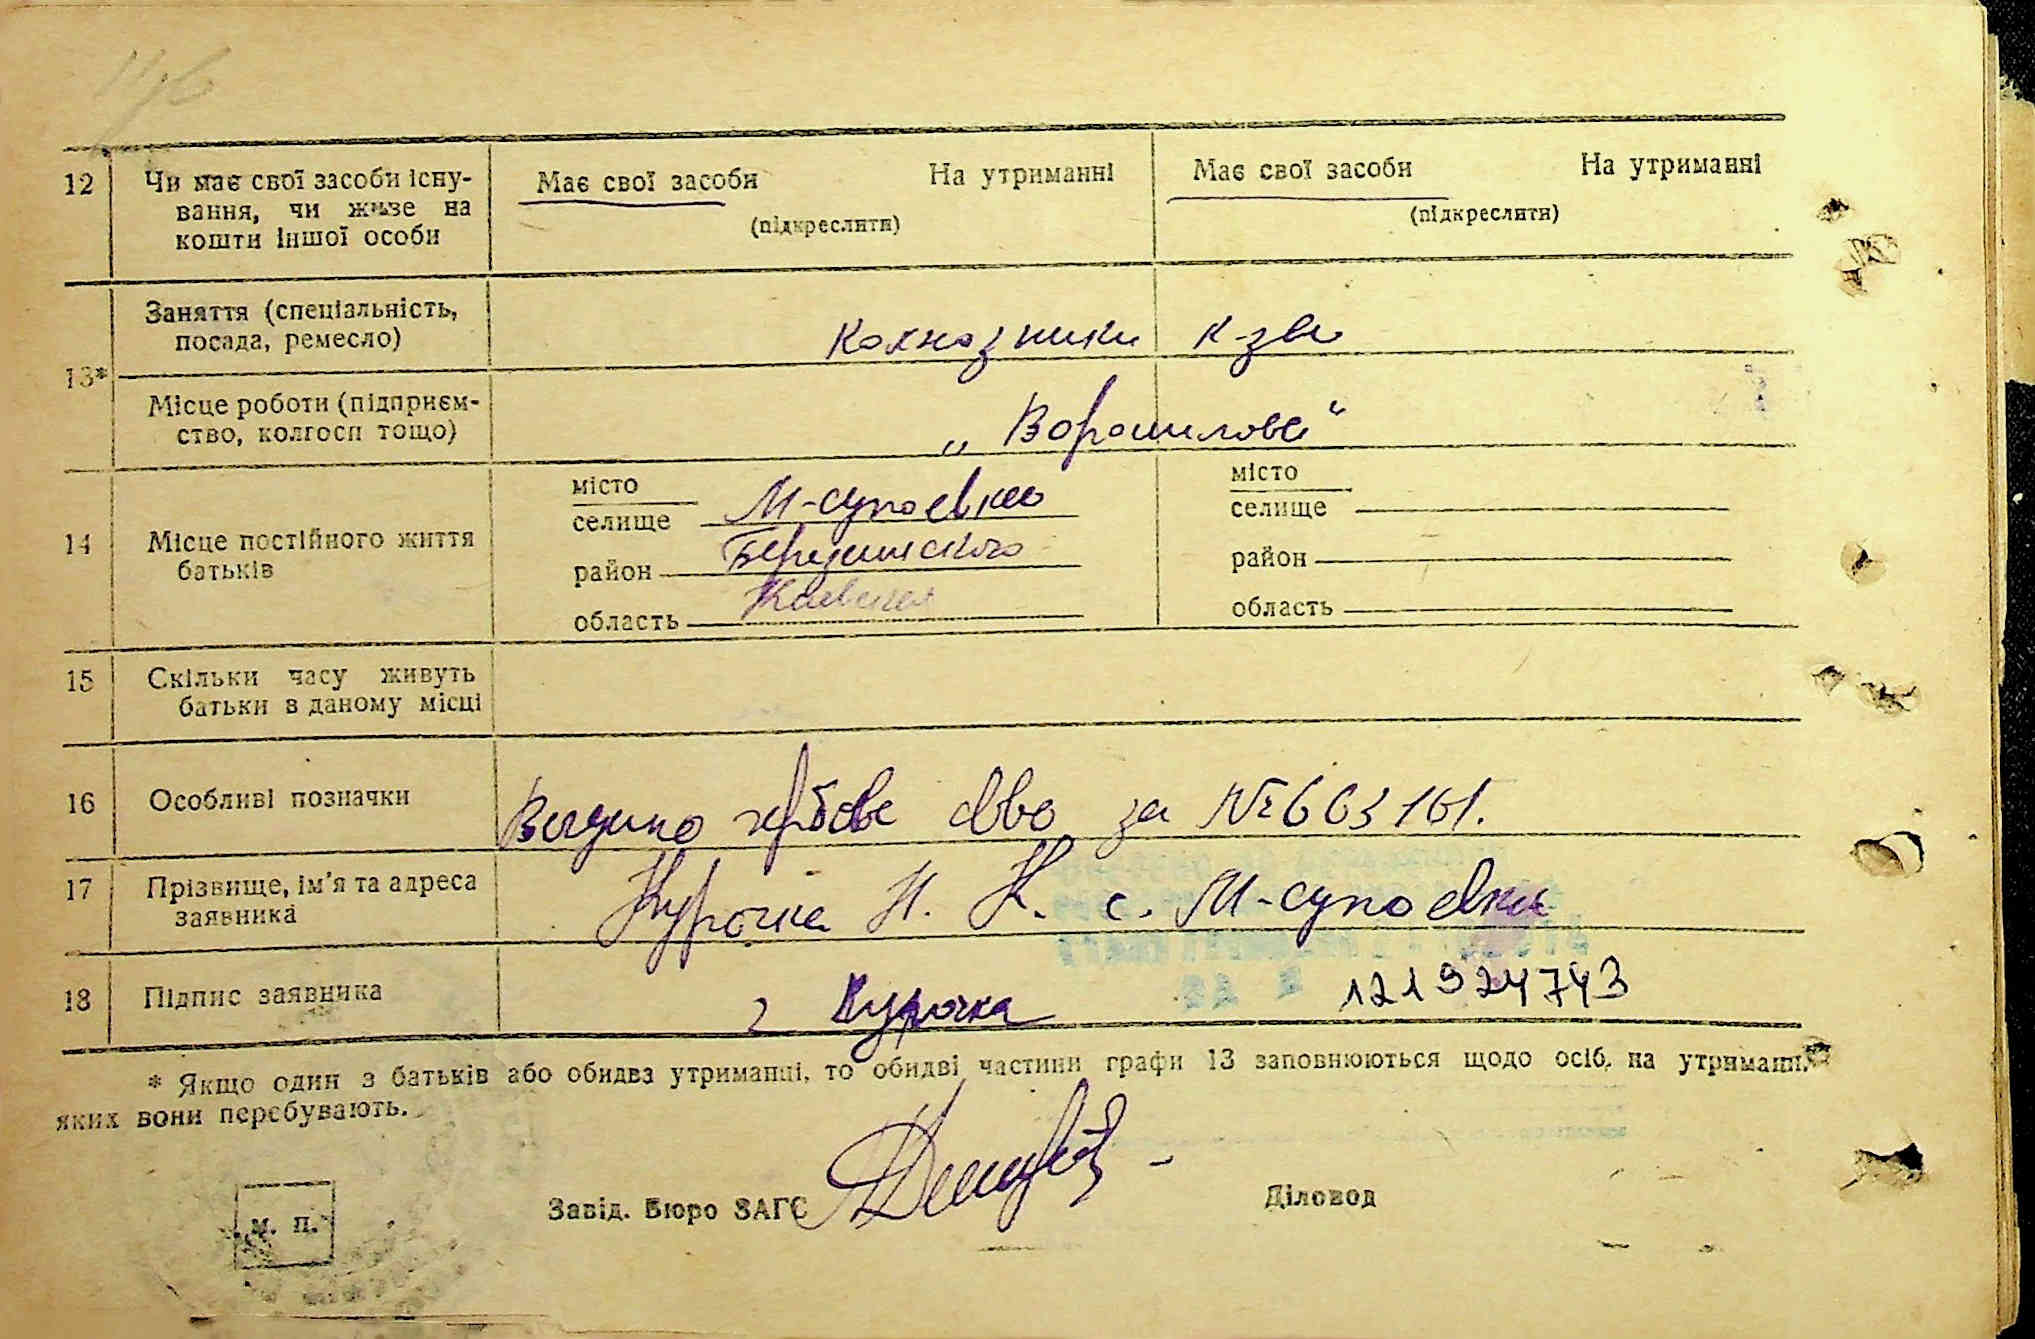 12 Чи має свої засоби існу-
вання, чи живе на
кошти іншої особи
Має свої засоби На утриманні
(підкреслити)
Має свої засоби На утриманні
(підкреслити)
13*
Заняття (спеціальність,
посада, ремесло)
Колхозники к-зва
Місце роботи (підприєм-
ство, колгосп тощо)
„Ворошилова“
14 Місце постійного життя
батьків
місто
селище М-супоевка
район Березинского
область Киевская
місто
селище
район
область
15 Скільки часу живуть
батьки в даному місці
16 Особливі позначки
Видано гербове св-во за № 663161.
17 Прізвище, ім'я та адреса
заявника
Курочка Н. К. с. М-супоевка
18 Підпис заявника
Курочка 121924743
* Якщо один з батьків або обидва утриманці, то обидві частини графи 13 заповнюються щодо осіб, на утриманні
яких вони перебувають.
м. п.
Завід. Бюро ЗАГС
Діловод